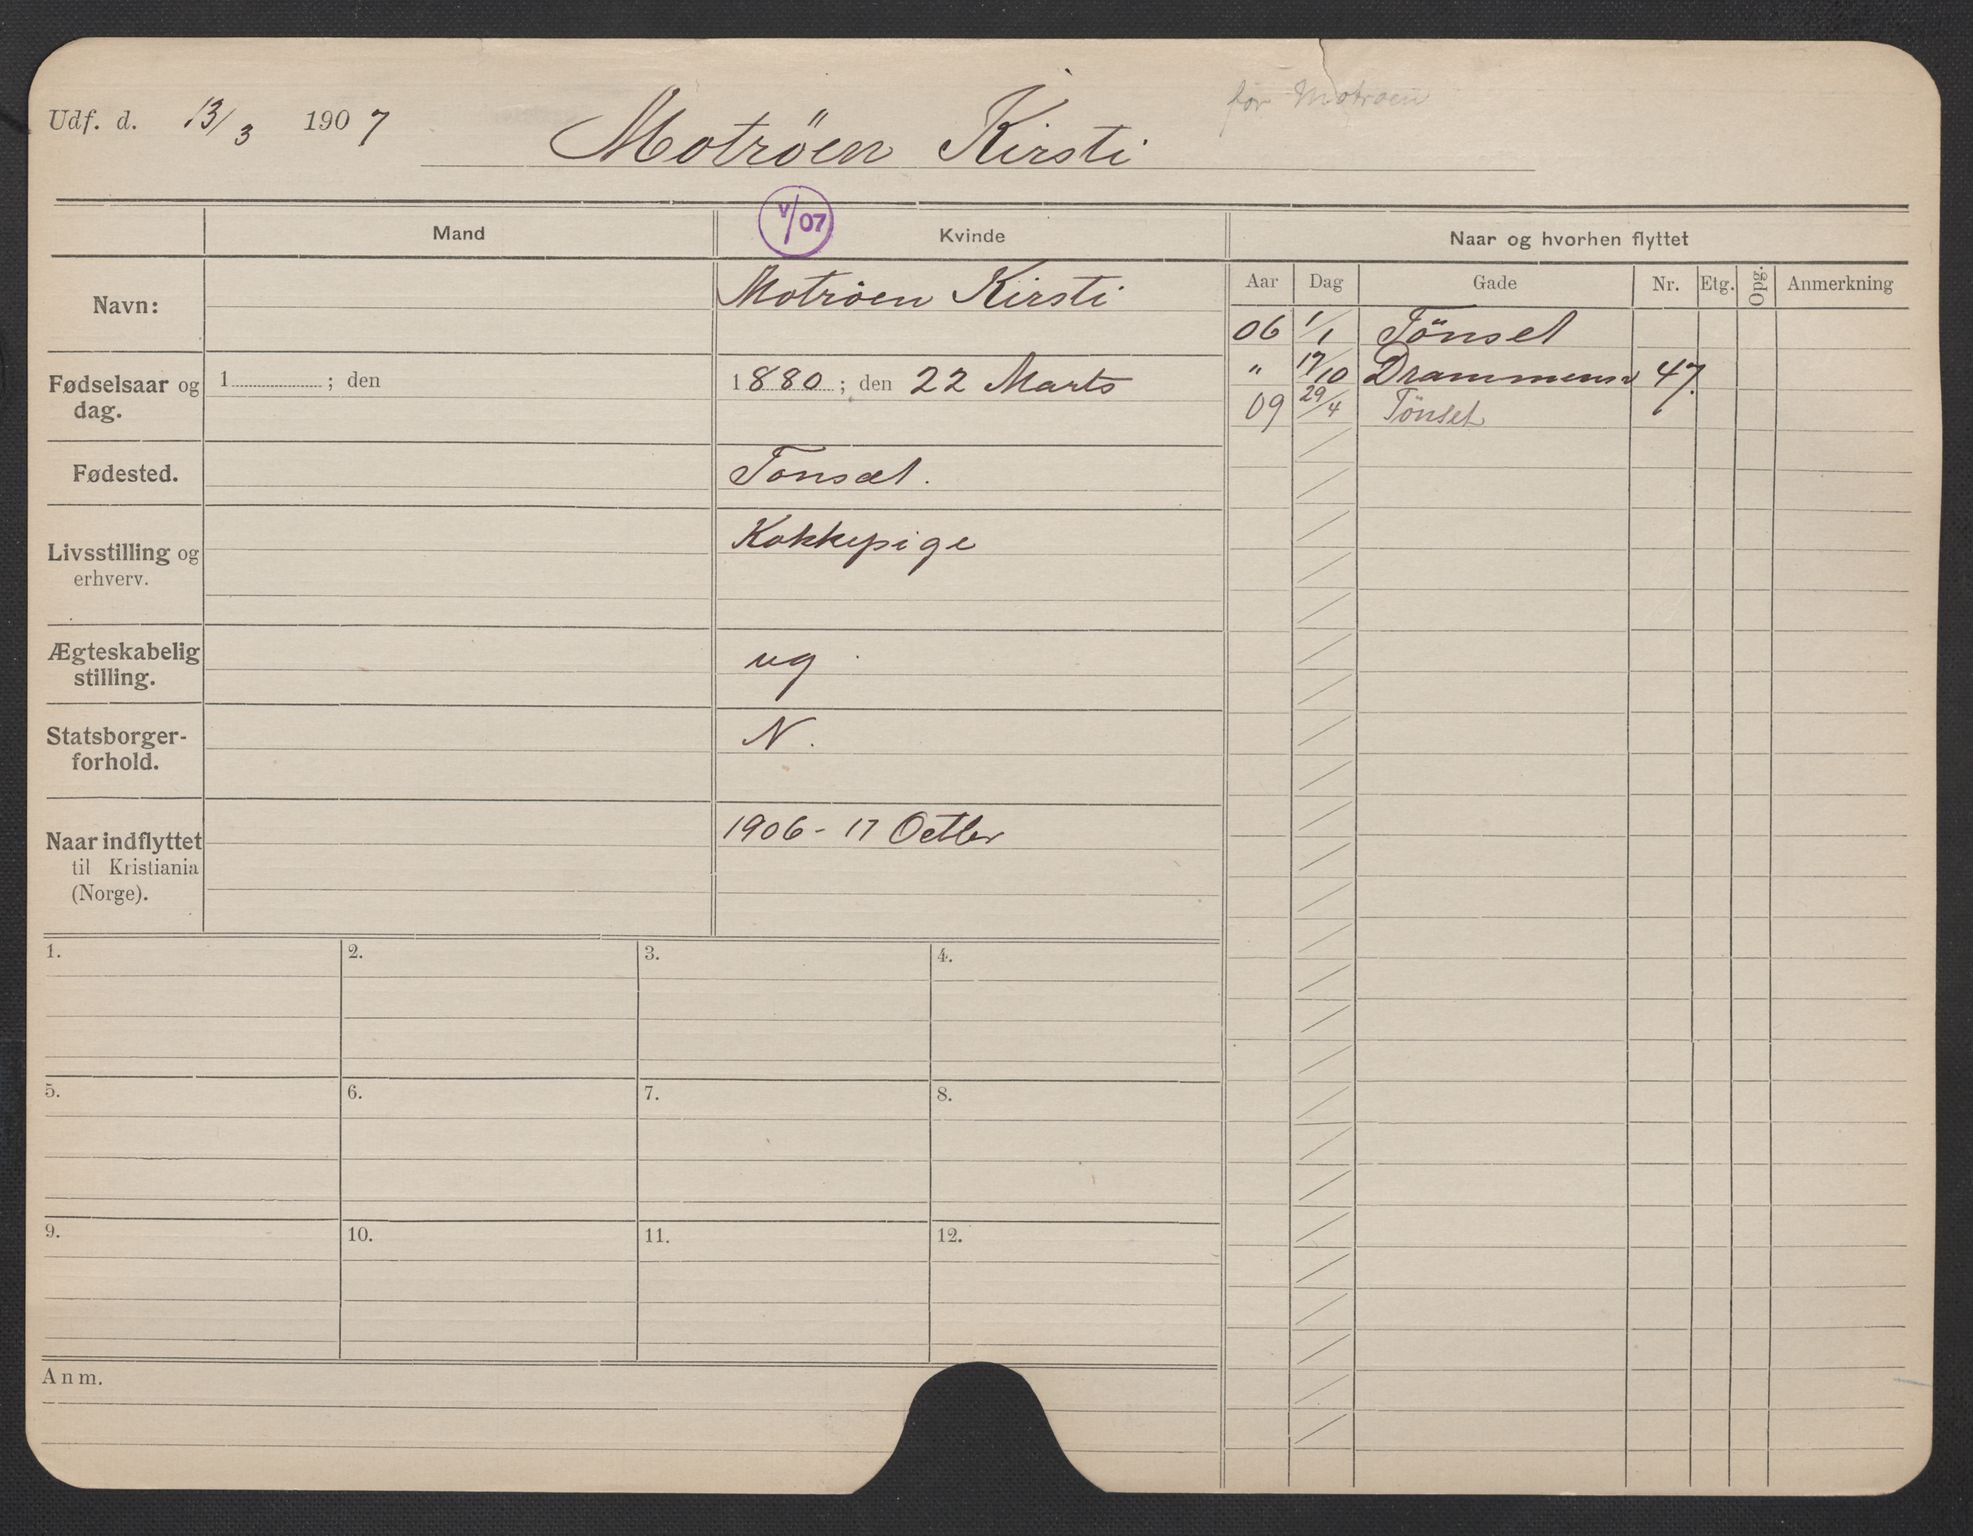 Udf. d. 13/3 1907
Motröen Kirsti
før Motrøen
V/07
Mand
Kvinde
Naar og hvorhen flyttet
Aar Dag Gade Nr. Etg. Opg. Anmerkning
Navn:
Motröen Kirsti
06 1/1 Tönset
" 17/10 Drammensv 47.
09 29/4 Tönset
Fødselsaar og dag.
1 ; den
1880 ; den 22 Marts
Fødested.
Tonsæt.
Livsstilling og erhverv.
Kokkepige
Ægteskabelig stilling.
ug
Statsborger-forhold.
N.
Naar indflyttet til Kristiania (Norge).
1906 - 17 Octbr
1. 2. 3. 4.
5. 6. 7. 8.
9. 10. 11. 12.
Anm.